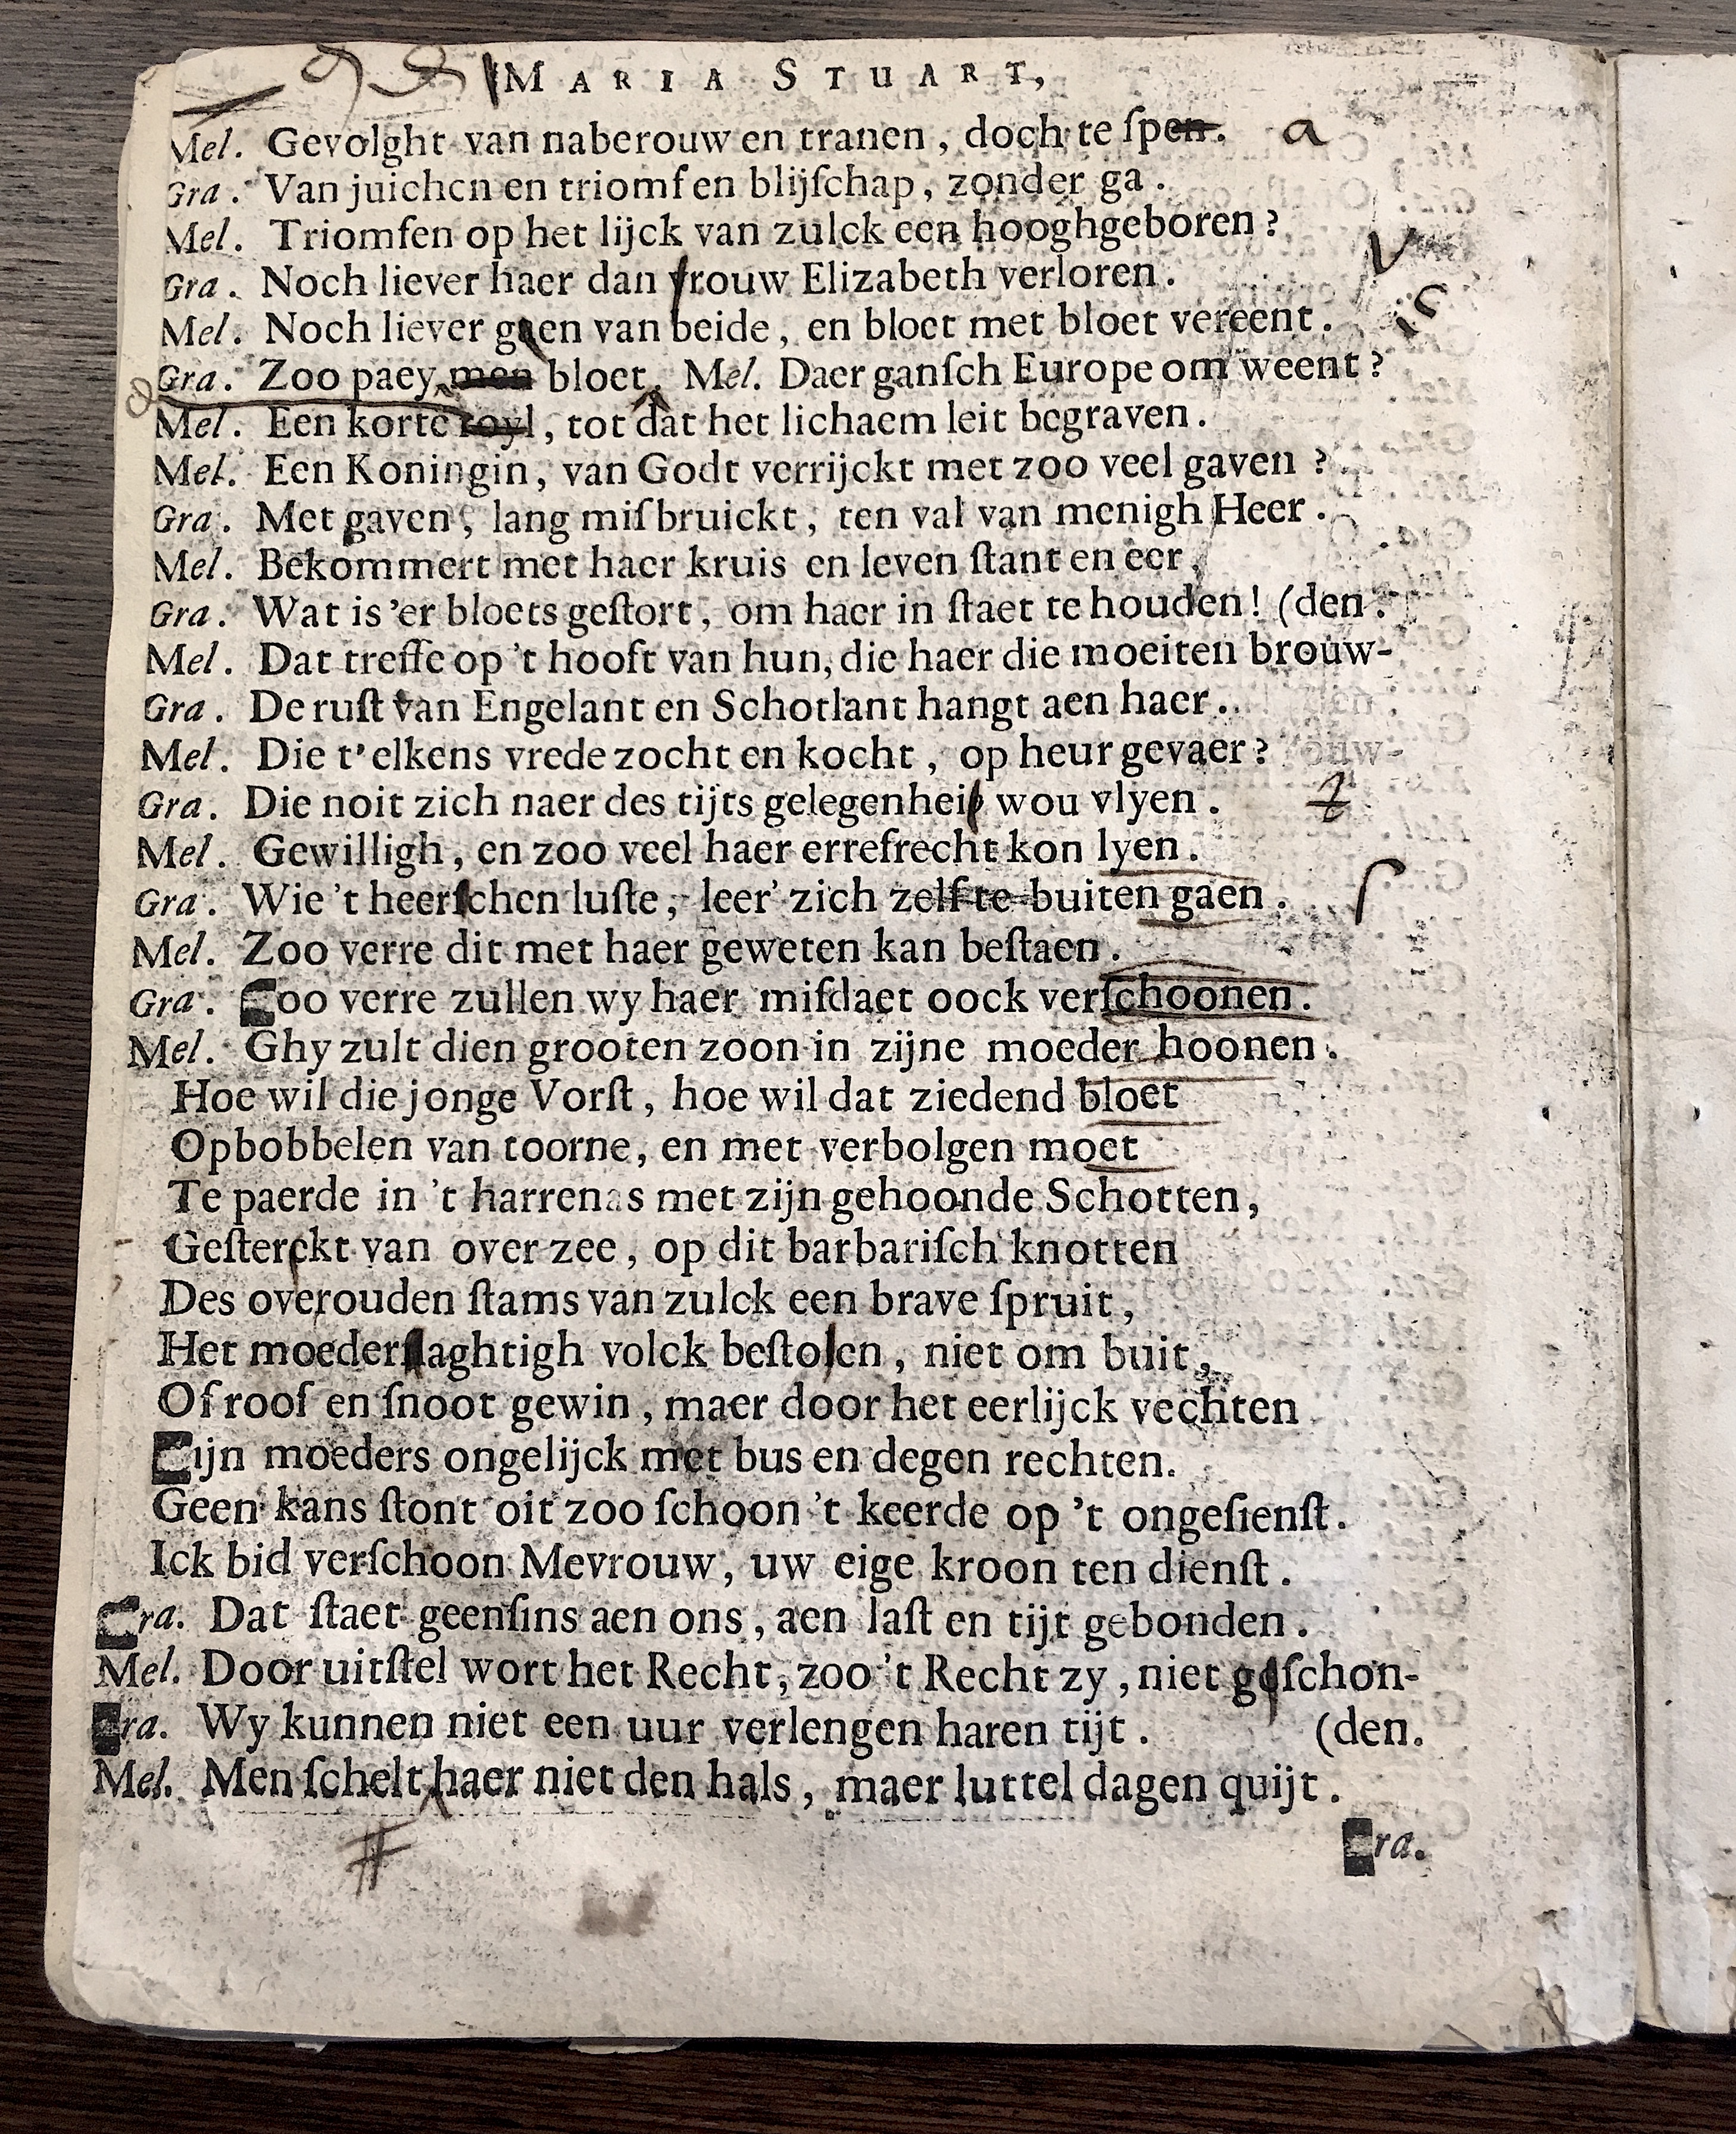 MARIA STUART,
Mel. Gevolght van naberouw en tranen, doch te ſpen. a
Gra. Van juichen en triomf en blijſchap, zonder ga.
Mel. Triomfen op het lijck van zulck een hooghgeboren?
Gra. Noch liever haer dan vrouw Elizabeth verloren. V
Mel. Noch liever geen van beide, en bloet met bloet vereent.
Gra. Zoo paey men bloet. Mel. Daer ganſch Europe om weent?
Mel. Een korte royl, tot dat het lichaem leit begraven.
Mel. Een Koningin, van Godt verrijckt met zoo veel gaven?
Gra. Met gaven, lang miſbruickt, ten val van menigh Heer.
Mel. Bekommert met haer kruis en leven ſtant en eer,
Gra. Wat is 'er bloets geſtort, om haer in ſtaet te houden! (den.
Mel. Dat treffe op 't hooft van hun, die haer die moeiten brouw-
Gra. De ruſt van Engelant en Schotlant hangt aen haer.
Mel. Die t'elkens vrede zocht en kocht, op heur gevaer?
Gra. Die noit zich naer des tijts gelegenheit wou vlyen. t
Mel. Gewilligh, en zoo veel haer errefrecht kon lyen.
Gra. Wie 't heerſchen luſte, leer' zich zelf te buiten gaen. ſ
Mel. Zoo verre dit met haer geweten kan beſtaen.
Gra. Zoo verre zullen wy haer miſdaet oock verſchoonen.
Mel. Ghy zult dien grooten zoon in zijne moeder hoonen.
Hoe wil die jonge Vorſt, hoe wil dat ziedend bloet
Opbobbelen van toorne, en met verbolgen moet
Te paerde in 't harrenas met zijn gehoonde Schotten,
Geſterckt van over zee, op dit barbariſch knotten
Des overouden ſtams van zulck een brave ſpruit,
Het moederſlaghtigh volck beſtoken, niet om buit,
Of roof en ſnoot gewin, maer door het eerlijck vechten
Zijn moeders ongelijck met bus en degen rechten.
Geen kans ſtont oit zoo ſchoon 't keerde op 't ongeſienſt.
Ick bid verſchoon Mevrouw, uw eige kroon ten dienſt.
Gra. Dat ſtaet geenſins aen ons, aen laſt en tijt gebonden.
Mel. Door uitſtel wort het Recht, zoo 't Recht zy, niet geſchon-
Gra. Wy kunnen niet een uur verlengen haren tijt. (den.
Mel. Men ſchelt haer niet den hals, maer luttel dagen quijt.
#
Gra.